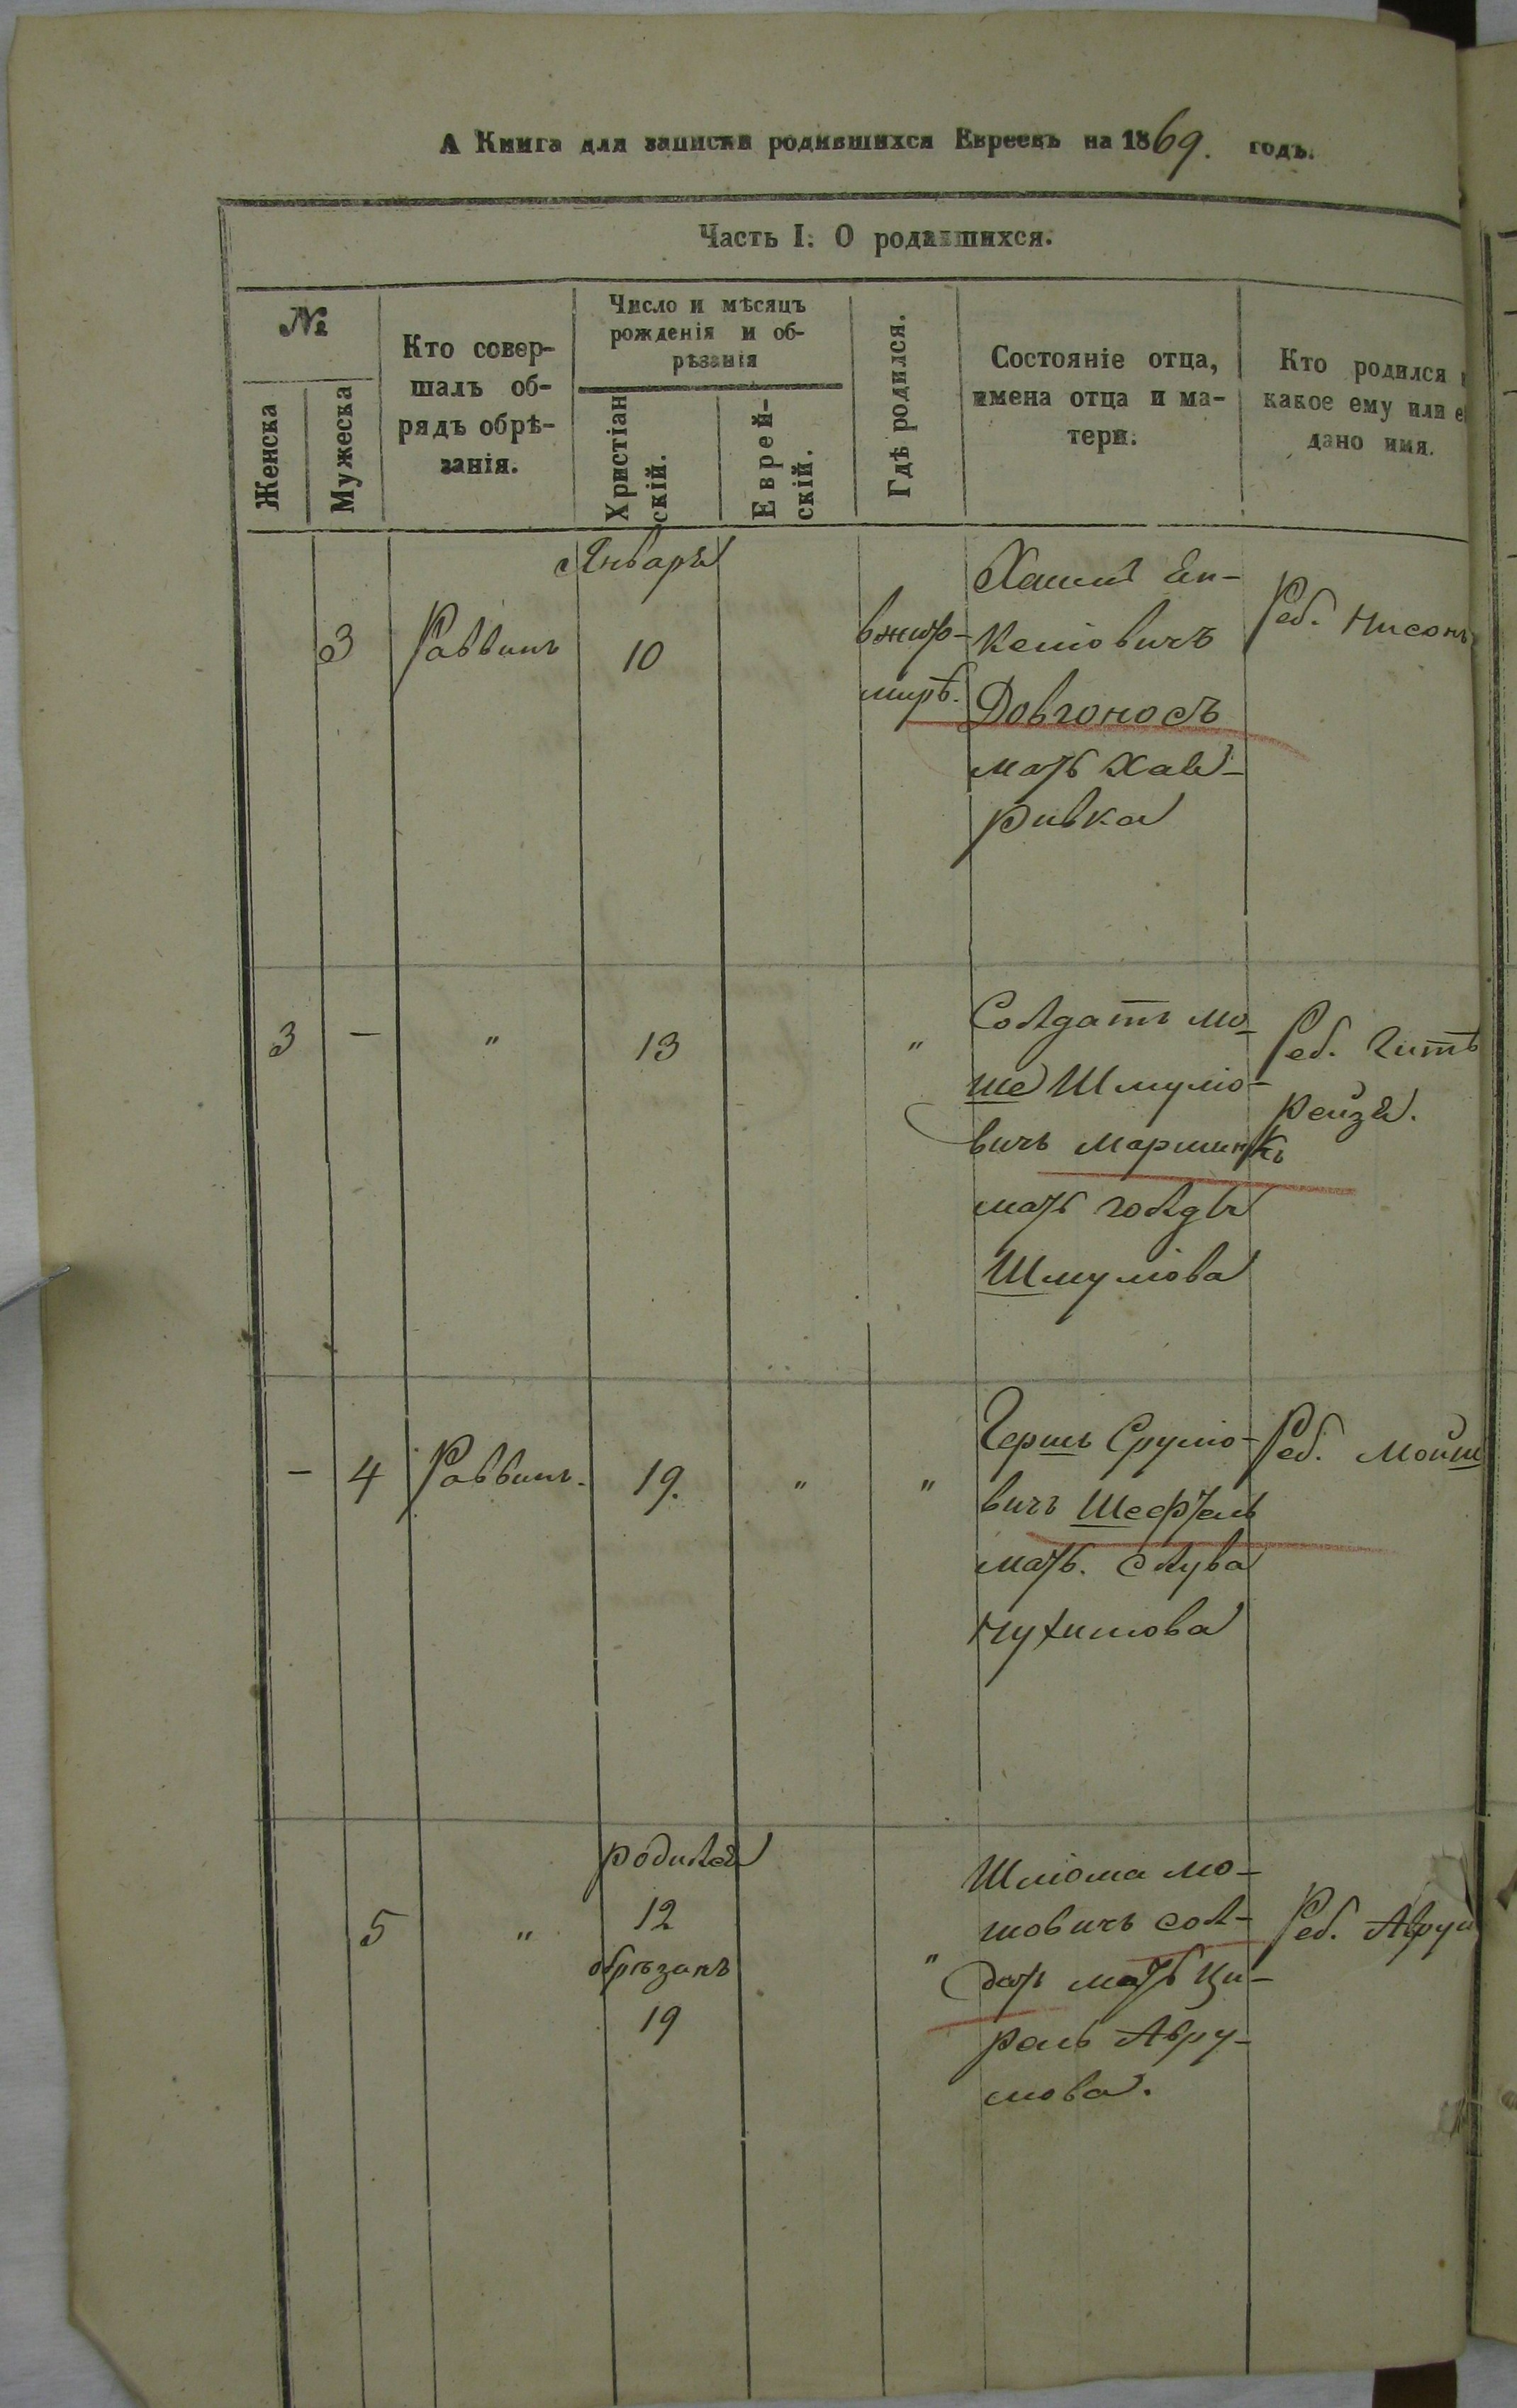 А Книга для записки родившихся Евреевъ на 1869. годъ.
Часть I: О родившихся.
№
Женска
Мужеска
Кто совер-
шалъ об-
рядъ обрѣ-
занія.
Число и мѣсяцъ
рожденія и об-
рѣзанія
Христіан
скій.
Еврей-
скій.
Гдѣ родился.
Состояніе отца,
имена отца и ма-
тери.
Кто родился
какое ему или е
дано имя.
Января
3
Раввинъ
10
в жито-
мирѣ.
Хаимъ
Довгоносъ
мать Хая
ривка
Реб. Нисонъ
3
—
"
13
"
Солдатъ мо-
ше Шмуліо-
вичъ
мать голда
Шмуліова
Реб. Гитъ
рейзя.
—
4
Раввинъ.
19.
"
"
Гершъ Сруліо-
вичъ Шефтель
мать. слува
Нухимова
Реб. Мойш
5
"
родился
12
обрѣзанъ
19
"
Шліома мо-
шовичъ сол-
датъ мать Ци-
рель Авру-
мова.
Реб. Аврум